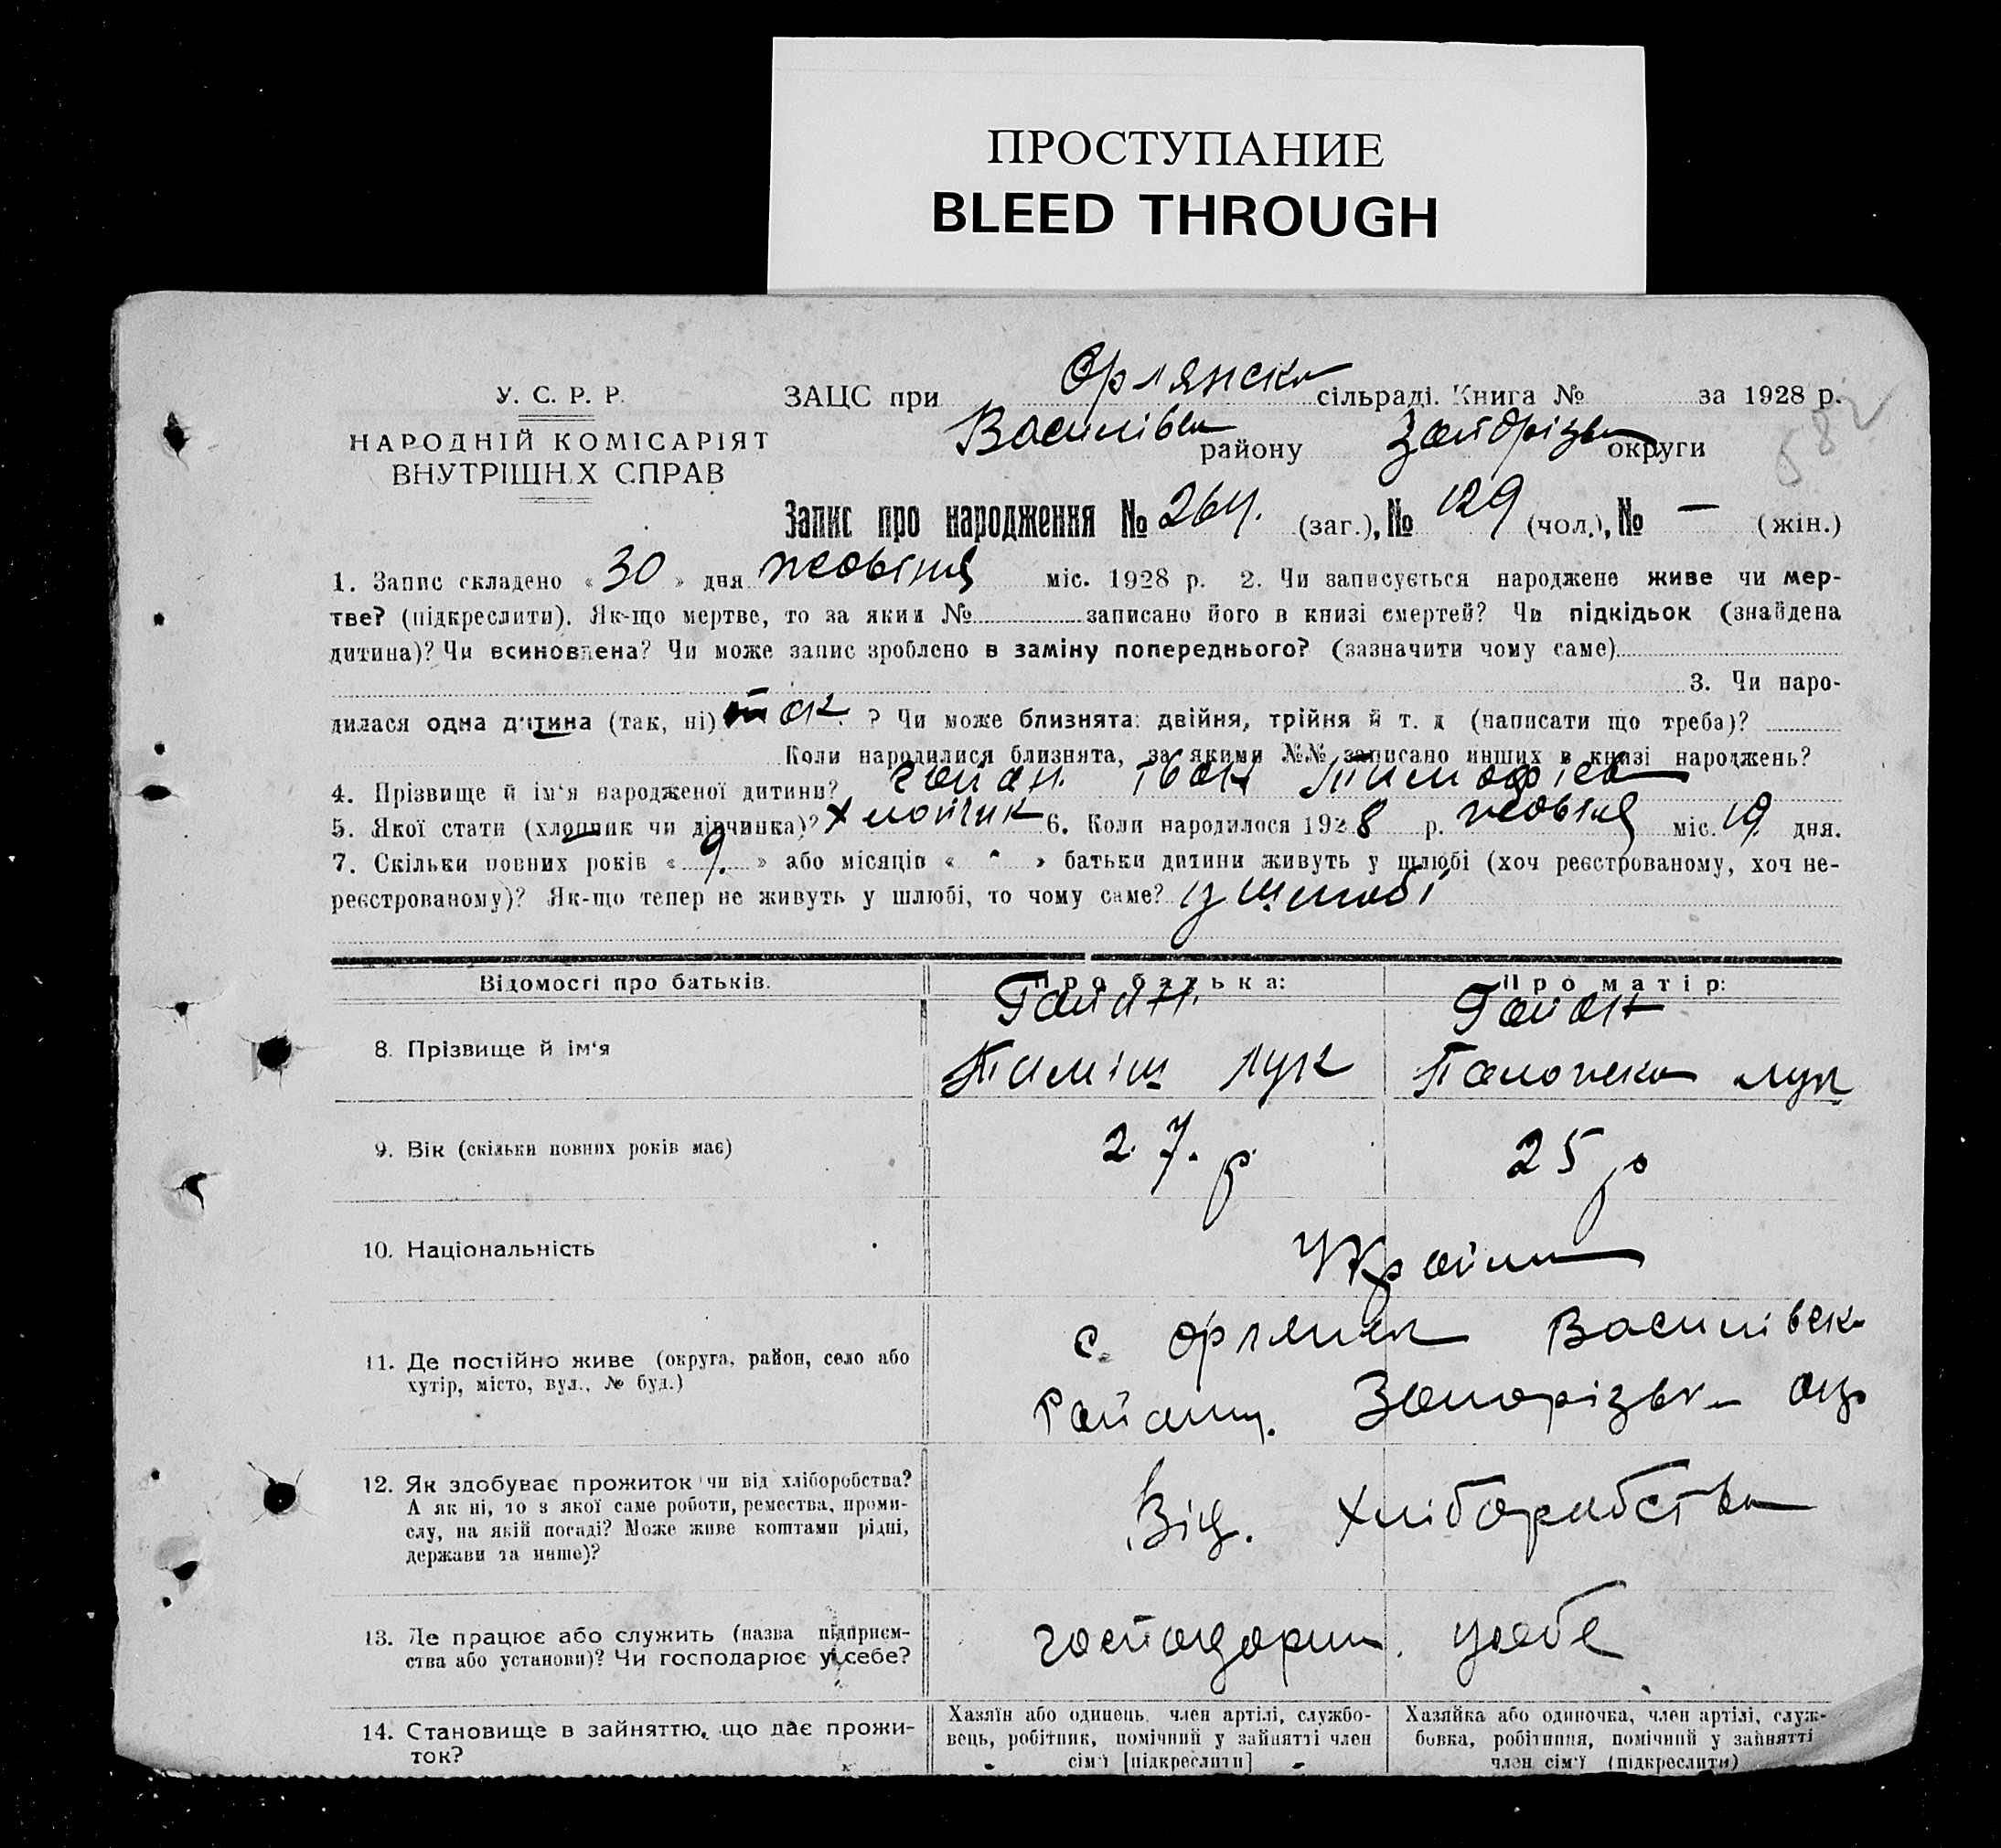 ПРОСТУПАНИЕ
BLEED THROUGH
У. С. Р. Р.
НАРОДНІЙ КОМІСАРІЯТ
ВНУТРІШНІХ СПРАВ
ЗАЦС при Орлянска сільраді. Книга № за 1928 р.
Василівськ району Запорізьк округи
582
Запис про народження № 264. (заг.), № 129 (чол.), № — (жін.)
1. Запис складено «30» дня жовтня міс. 1928 р. 2. Чи записується народжене живе чи мер-
тве? (підкреслити). Як-що мертве, то за яким № записано його в книзі смертей? Чи підкідьок (знайдена
дитина)? Чи всиновлена? Чи може запис зроблено в заміну попереднього? (зазначити чому саме)
3. Чи наро-
дилася одна дитина (так, ні) так ? Чи може близнята: двійня, трійня й т. д (написати що треба)?
Коли народилися близнята, за якими №№ записано инших в книзі народжень?
4. Прізвище й ім'я народженої дитини? Іван Тимофієв
5. Якої стати (хлопчик чи дівчинка)? Хлопчик 6. Коли народилося 1928 р. жовтня міс. 19 дня.
7. Скільки повних років «9.» або місяців « » батьки дитини живуть у шлюбі (хоч реєстрованому, хоч не-
реєстрованому)? Як-що тепер не живуть у шлюбі, то чому саме? у шлюбі
Відомості про батьків. Про батька: Про матір:
8. Прізвище й ім'я
Тиміш Лук Палажка Лук
9. Вік (скільки повних років має) 27. р. 25 р
10. Національність Україн
11. Де постійно живе (округа, район, село або
хутір, місто, вул., № буд.)
с. Орлянск Василівськ
Району. Запорізьк окр
12. Як здобуває прожиток чи від хліборобства?
А як ні, то з якої саме роботи, ремества, проми-
слу, на якій посаді? Може живе коштами рідні,
держави та инше)?
Від. Хліборобства
13. Де працює або служить (назва підприєм-
ства або установи)? Чи господарює у себе?
господарює. усебе
14. Становище в зайняттю, що дає прожи-
ток?
Хазяїн або одинець, член артілі, службо-
вець, робітник, помічний у зайнятті член
сім'ї [підкреслити]
Хазяйка або одиночка, член артілі, служ-
бовка, робітниця, помічний у зайнятті
член сім'ї (підкреслити)